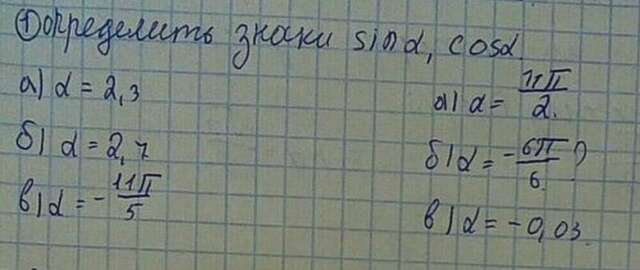 ① Определить знаки sin α, cos α
а) α = 2,3
б) α = 2,7
в) α = -11π/5
а) α = 11π/2.
б) α = -6π/6 ?
в) α = -0,03.